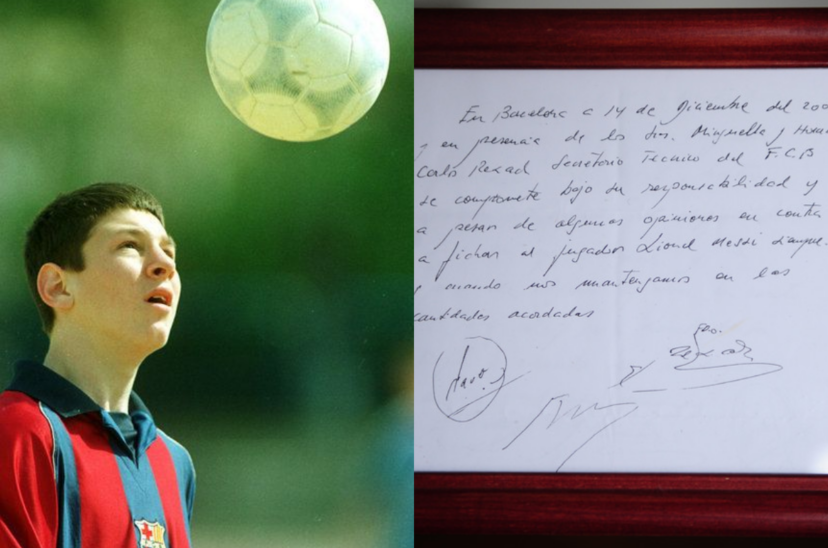 En Barcelona a 14 de Diciembre del 200
y en presencia de los Sres. Minguella y Hora
Carlos Rexach Secretario Técnico del F.C.B
se compromete bajo su responsabilidad y
a pesar de algunas opiniones en contra
a fichar al jugador Lionel Messi siempre
y cuando nos mantengamos en las
cantidades acordadas